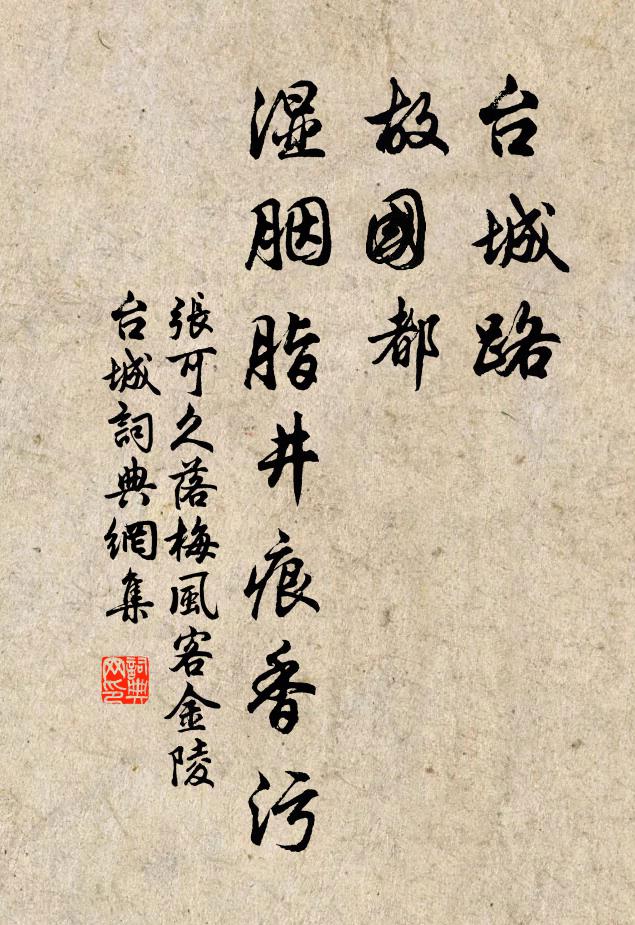 台城路
故國都
湿胭脂井痕香污
張可久落梅風客金陵
台城詞典網集
詞典
网印